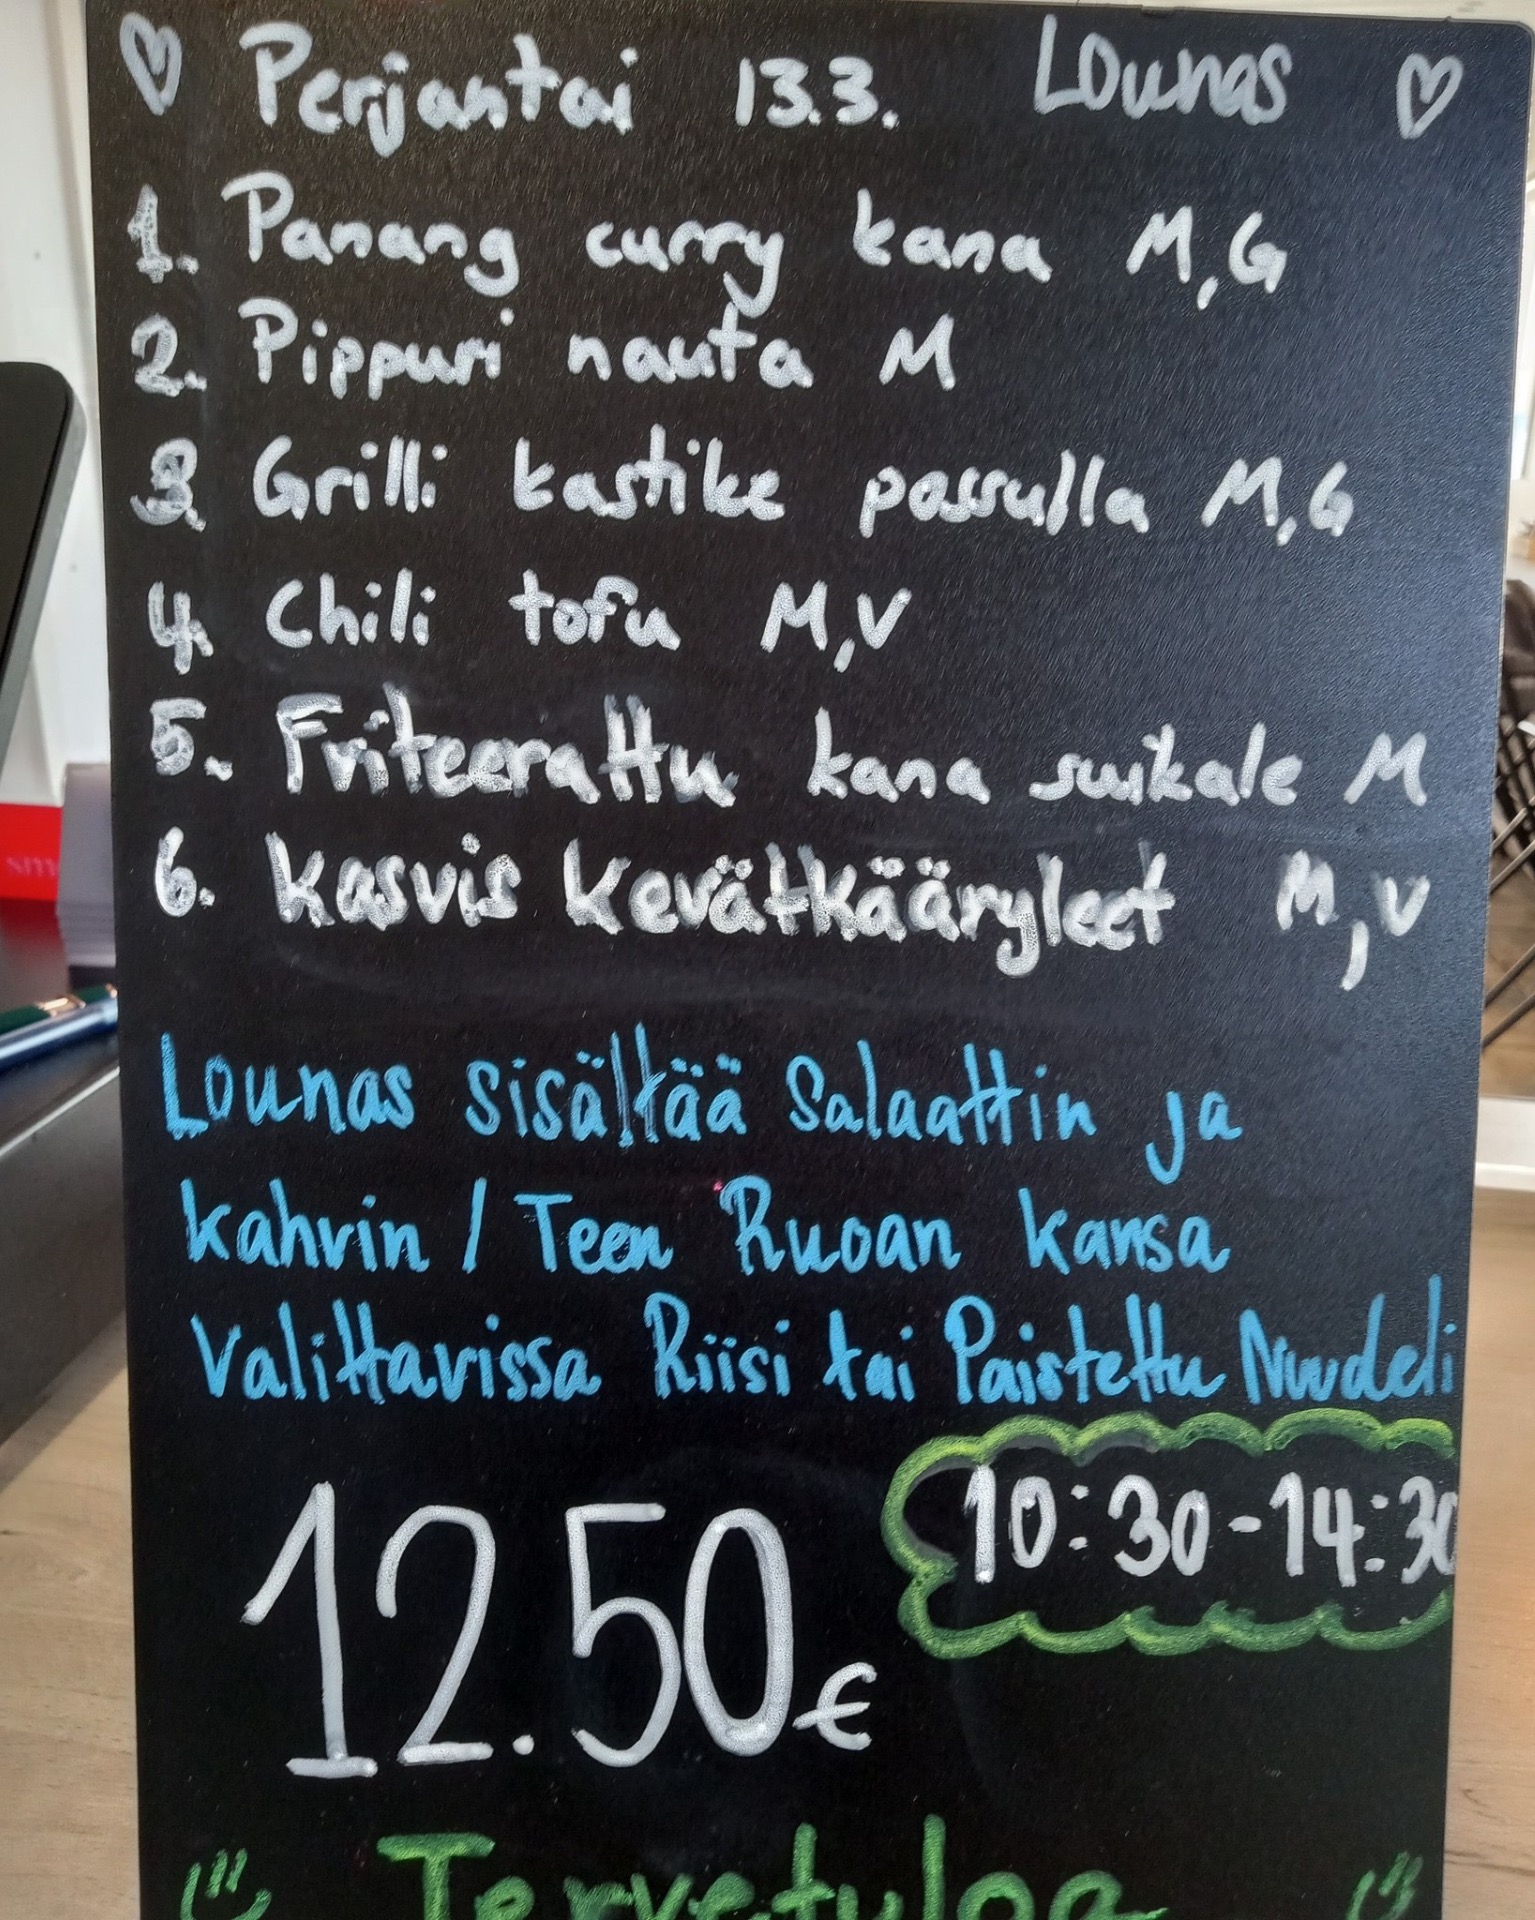 ♡ Perjantai 13.3. Lounas ♡
1. Panang curry kana M,G
2. Pippuri nauta M
3. Grilli kastike possulla M,G
4. Chili tofu M,V
5. Friteerattu kana suikale M
6. Kasvis kevätkääryleet M,V
Lounas sisältää Salaattin ja
kahvin / Teen Ruoan kansa
Valittavissa Riisi tai Paistettu Nuudeli
10:30-14:30
12.50€
Tervetuloa